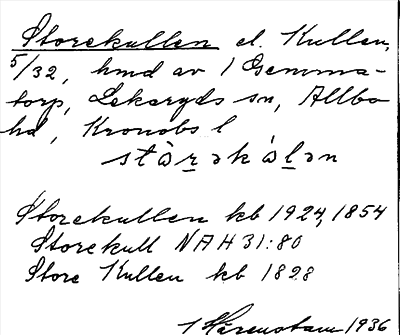 Storekullen el. Kullen,
5/32, hmd av 1 Gemma-
torp, Lekaryds sn, Allbo
hd, Kronobs l
stòrəkàlən
Storekullen kb 1924, 1854
Storekull NAH 31:80
Store Kullen kb 1828
1936